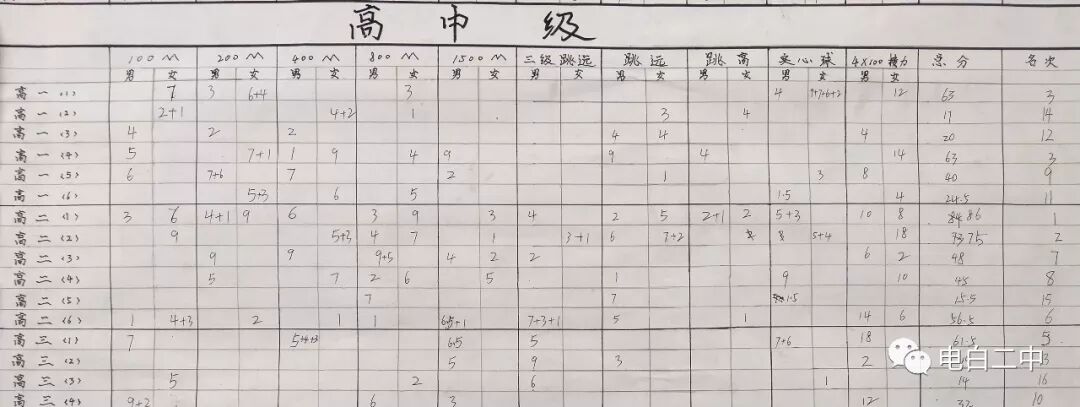 高中级
100M 200M 400M 800M 1500M 三级跳远 跳远 跳高 实心球 4×100接力 总分 名次
男 女 男 女 男 女 男 女 男 女 男 女 男 女 男 女 男 女 男 女
高一(1) 7 3 6+4 3 4 9+7+6+2 12 63 3
高一(2) 2+1 4+2 1 3 4 17 14
高一(3) 4 2 2 4 4 4 20 12
高一(4) 5 7+1 1 9 4 9 9 4 14 63 3
高一(5) 6 7+6 7 2 1 3 8 40 9
高一(6) 5+3 6 5 1.5 4 24.5 11
高二(1) 3 6 4+1 9 6 3 9 3 4 2 5 2+1 2 5+3 10 8 84 86 1
高二(2) 9 5+3 4 7 1 3+1 6 7+2 8 5+4 18 75 2
高二(3) 9 9 9+5 4 2 2 6 2 48 7
高二(4) 5 7 2 6 5 1 9 10 45 8
高二(5) 7 7 1.5 15.5 15
高二(6) 1 4+3 2 1 1 6.5+1 7+3+1 5 1 14 6 56.5 6
高三(1) 7 5+4+3 6.5 5 7+6 18 61.5 5
高三(2) 5 9 3 2
高三(3) 5 2 6 1 14 16
高三(4) 9+2 6 3 12 32 10
电白二中